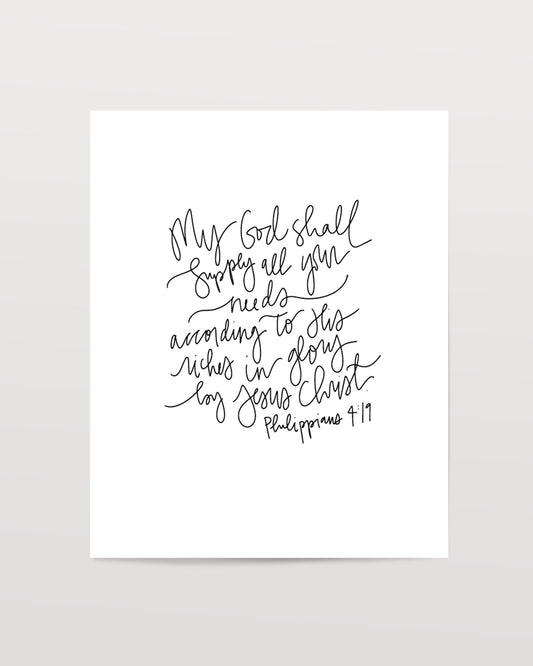 My God shall
supply all your
needs
according to His
riches in glory
by Jesus Christ.
Philippians 4:19